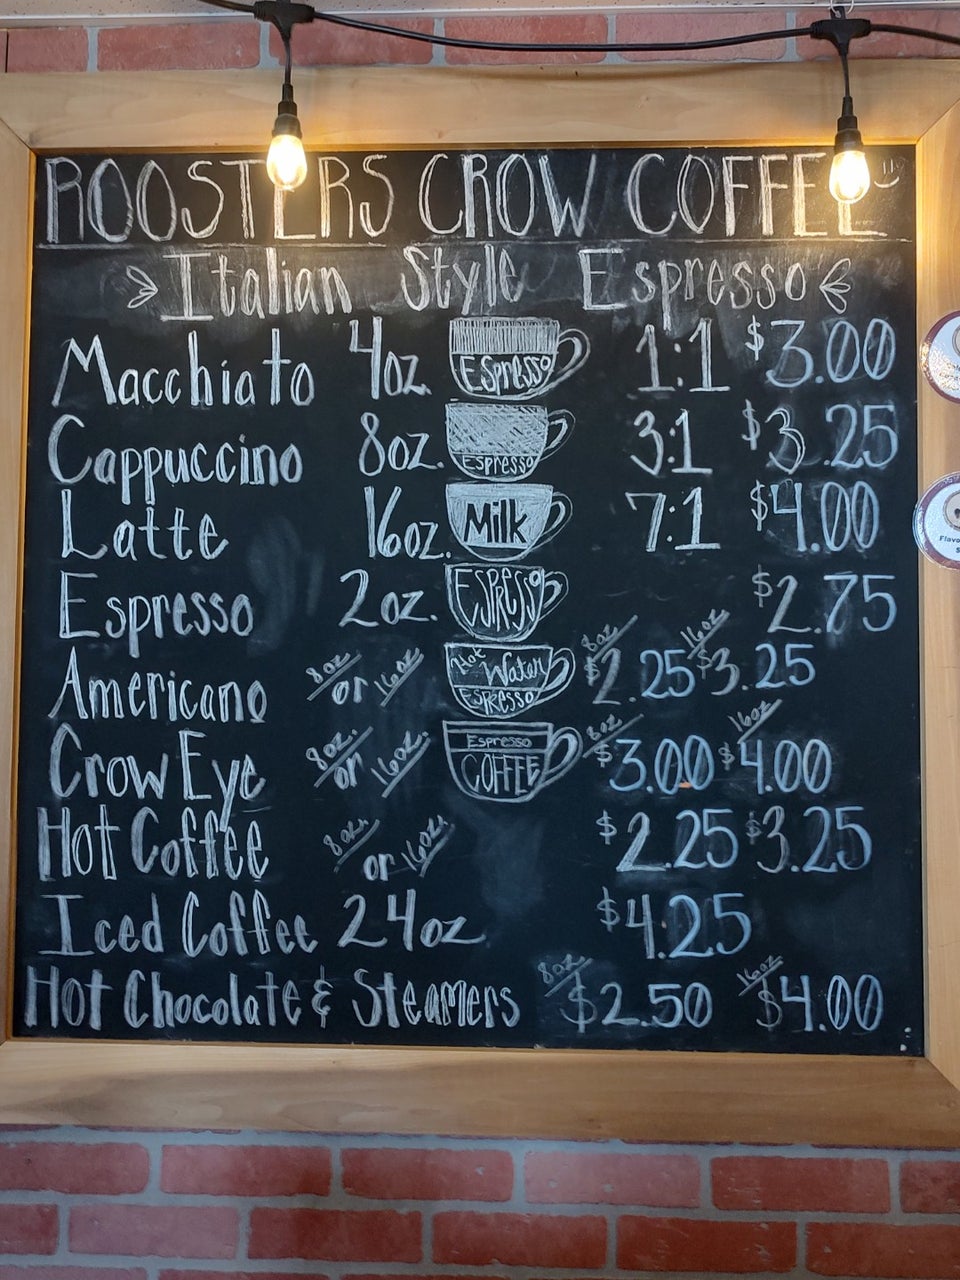 ROOSTERS CROW COFFEE
Italian Style Espresso
Macchiato 4oz. Espresso 1:1 $3.00
Cappuccino 8oz. Espresso 3:1 $3.25
Latte 16oz. Milk 7:1 $4.00
Espresso 2oz. ESPRESSO $2.75
Americano 8oz. or 16oz. Hot Water ESPRESSO 8oz $2.25 16oz $3.25
Crow Eye 8oz. or 16oz. Espresso COFFEE 8oz $3.00 16oz $4.00
Hot Coffee 8oz. or 16oz. $2.25 $3.25
Iced Coffee 24oz $4.25
Hot Chocolate & Steamers 8oz $2.50 16oz $4.00